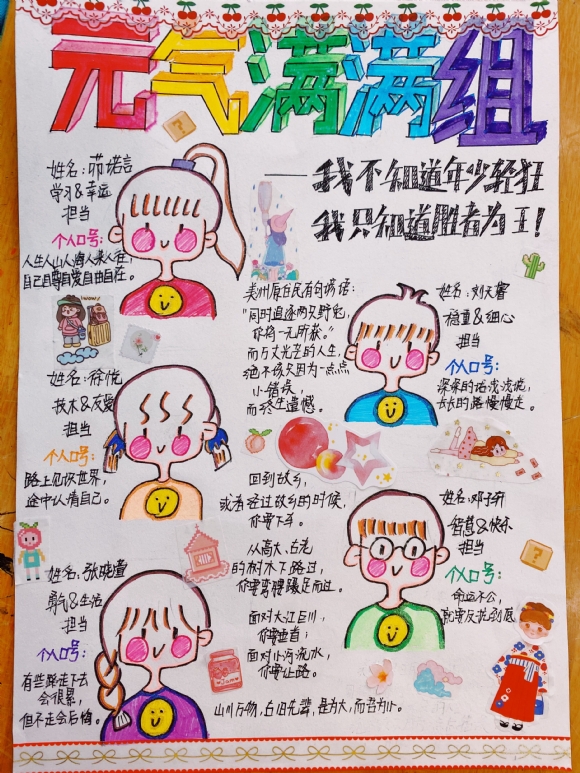 元气满满组
——我不知道年少轻狂
我只知道胜者为王!
姓名:茆诺言
学习&幸运
担当
个人口号:
人生人山人海人来人往,
自己自尊自爱自由自在。
姓名:徐悦
技术&友爱
担当
个人口号:
路上见识世界,
途中认清自己。
姓名:张晓萱
勇气&生活
担当
个人口号:
有些路走下去
会很累,
但不走会后悔。
美州原住民有句谚语:
"同时追逐两只野兔,
你将一无所获。"
而万丈光芒的人生,
绝不该只因为一点点
小错误,
而终生遗憾。
回到故乡,
或者经过故乡的时候,
你要下车。
从高大、古老
的树木下路过,
你要弯腰蹑足而过。
面对大江巨川,
你要
面对小河流水,
你要让路。
山川万物,占旧先辈,是为大,而吾为小。
姓名:刘天馨
稳重&细心
担当
个人口号:
深深的话浅浅说,
长长的路慢慢走。
姓名:邓子轩
智慧&快乐
担当
个人口号:
命运不公,
就要反抗到底